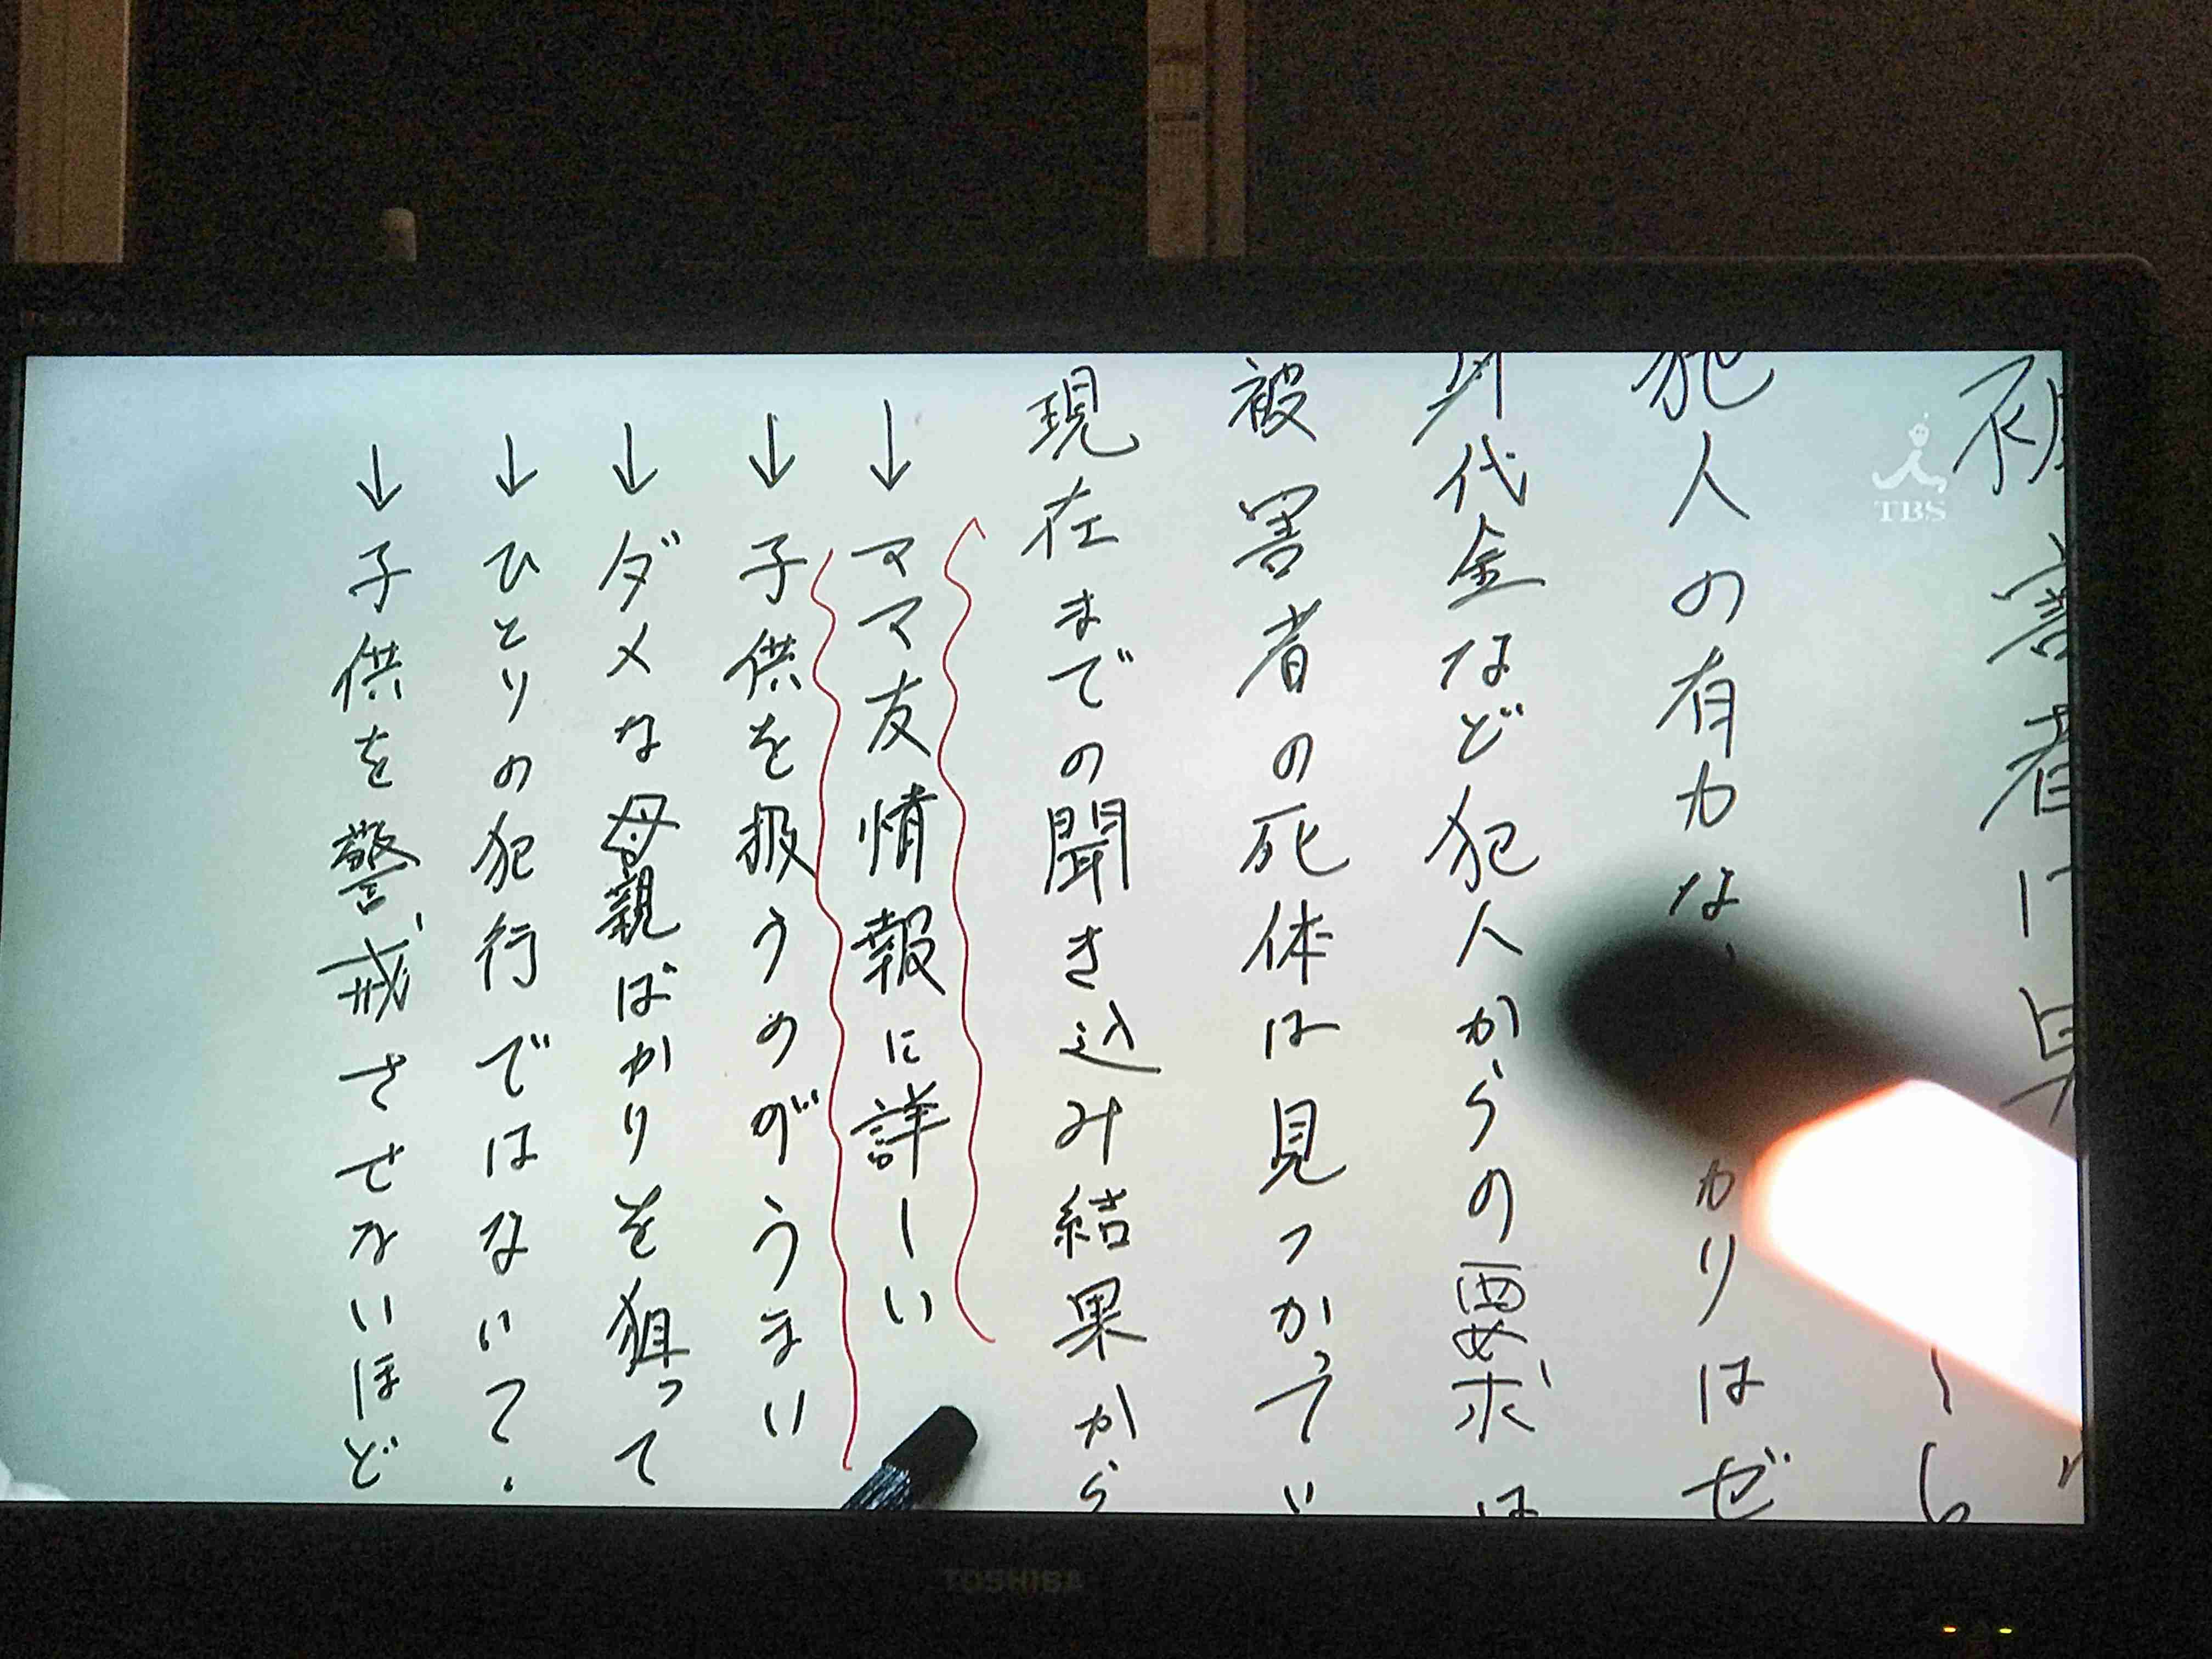 被害者に
犯人の有力な
かりはゼ
身代金など犯人からの要求は
被害者の死体は見つかってい
現在までの聞き込み結果から
↓ママ友情報に詳しい
↓子供を扱うのがうまい
↓ダメな母親ばかりを狙って
↓ひとりの犯行ではない？
↓子供を警戒させないほど
TBS
TOSHIBA